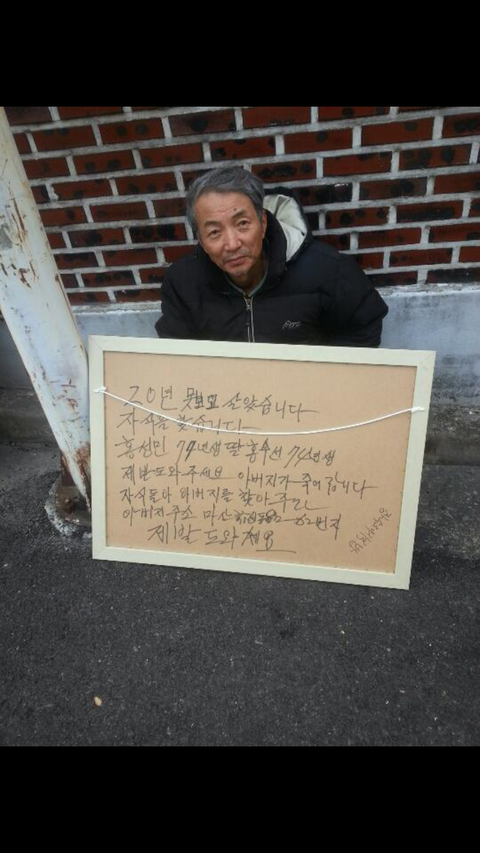 20년 못보고 살았습니다
자식을 찾습니다
홍성민 79년생 딸 홍우선 74년생
제발 도와 주세요 아버지가 죽어 갑니다
자식들아 아버지를 찾아 주라
아버지 주소 마산 번지
제발 도와 주세요